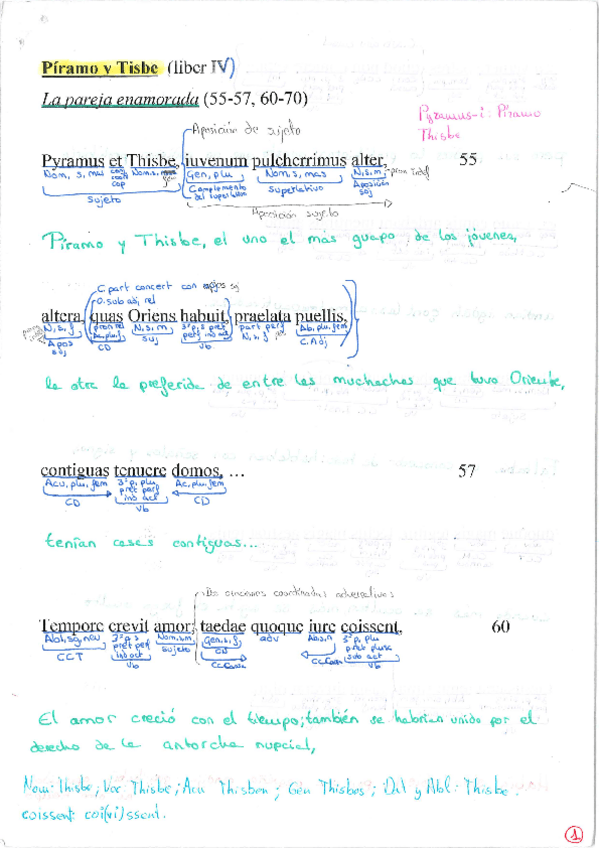 Píramo y Tisbe (liber IV)
La pareja enamorada (55-57, 60-70)
Pyramus-i: Píramo
Thisbe
Aposición de sujeto
Pyramus et Thisbe, iuvenum pulcherrimus alter, 55
Nom, s, mas Nom, s, Gen, plu Nom, s, mas N, s, m
Complemento del superlativo Superlativo Aposición suj
Sujeto
Aposición sujeto
Píramo y Thisbe, el uno el más guapo de los jóvenes,
C. part concert con apos suj
O. sub adj, rel
altera, quas Oriens habuit, praelata puellis,
N, s, f pron rel N, s, m 3ª p, s pret perf ind act part perf N, s, f Ab, plu, fem
Apos suj CD suj Vb C. Adj
la otra la preferida de entre las muchachas que tuvo Oriente,
contiguas tenuere domos, … 57
Acu, plu, fem 3ª p, plu pret perf ind act Ac, plu, fem
CD Vb CD
tenían casas contiguas...
Dos oraciones coordinadas adversativas
Tempore crevit amor; taedae quoque iure coissent, 60
Abl, sg, neu 3ª p, s pret perf ind act Nom, s, m Gen, s, f adv Ab, s, n 3ª p, plu pret plusc sub act
CCT Vb sujeto CN Vb
El amor creció con el tiempo; también se habrían unido por el
derecho de la antorcha nupcial,
Nom: Thisbe; Voc: Thisbe; Acu: Thisben; Gen: Thisbes; Dat y Abl: Thisbe.
coissent: coi(vi)ssent.
1